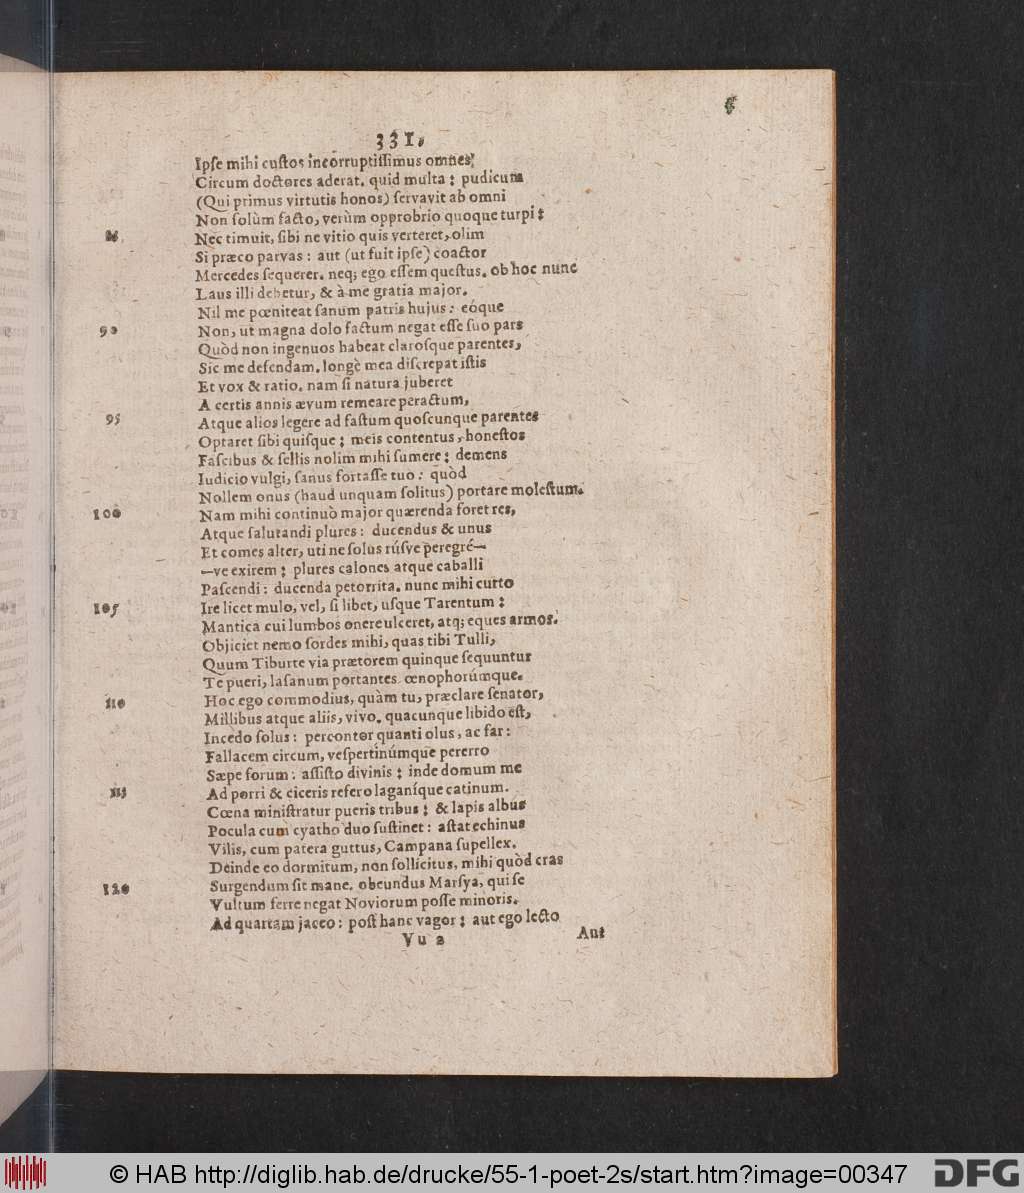 331.
Ipſe mihi cuſtos incorruptiſſimus omnes
Circum doctores aderat. quid multa: pudicum
(Qui primus virtutis honos) ſervavit ab omni
Non ſolùm facto, verùm opprobrio quoque turpi:
Nec timuit, ſibi ne vitio quis verteret, olim
Si præco parvas: aut (ut fuit ipſe) coactor
Mercedes ſequerer. neq; ego eſſem queſtus. ob hoc nunc
Laus illi debetur, & à me gratia major.
Nil me pœniteat ſanum patris hujus: eóque
90 Non, ut magna dolo factum negat eſſe ſuo pars
Quòd non ingenuos habeat claroſque parentes,
Sic me defendam. longè mea diſcrepat iſtis
Et vox & ratio. nam ſi natura juberet
A certis annis ævum remeare peractum,
95 Atque alios legere ad faſtum quoſcunque parentes
Optaret ſibi quiſque: meis contentus, honeſtos
Faſcibus & ſellis nolim mihi ſumere: demens
Iudicio vulgi, ſanus fortaſſe tuo: quòd
Nollem onus (haud unquam ſolitus) portare moleſtum.
100 Nam mihi continuò major quærenda foret res,
Atque ſalutandi plures: ducendus & unus
Et comes alter, uti ne ſolus rúſve peregré—
—ve exirem: plures calones atque caballi
Paſcendi: ducenda petorrita. nunc mihi curto
105 Ire licet mulo, vel, ſi libet, uſque Tarentum:
Mantica cui lumbos onere ulceret, atq; eques armos.
Objiciet nemo ſordes mihi, quas tibi Tulli,
Quum Tiburte via prætorem quinque ſequuntur
Te pueri, laſanum portantes œnophorúmque.
110 Hoc ego commodius, quàm tu, præclare ſenator,
Millibus atque aliis, vivo. quacunque libido eſt,
Incedo ſolus: percontor quanti olus, ac far:
Fallacem circum, veſpertinúmque pererro
Sæpe forum: aſſiſto divinis: inde domum me
115 Ad porri & ciceris refero laganíque catinum.
Cœna miniſtratur pueris tribus: & lapis albus
Pocula cum cyatho duo ſuſtinet: aſtat echinus
Vilis, cum patera guttus, Campana ſupellex.
Deinde eo dormitum, non ſollicitus, mihi quòd cras
120 Surgendum ſit mane. obeundus Marſya, qui ſe
Vultum ferre negat Noviorum poſſe minoris.
Ad quartam jaceo: poſt hanc vagor: aut ego lecto
Vu 2 Aut
© HAB http://diglib.hab.de/drucke/55-1-poet-2s/start.htm?image=00347
DFG